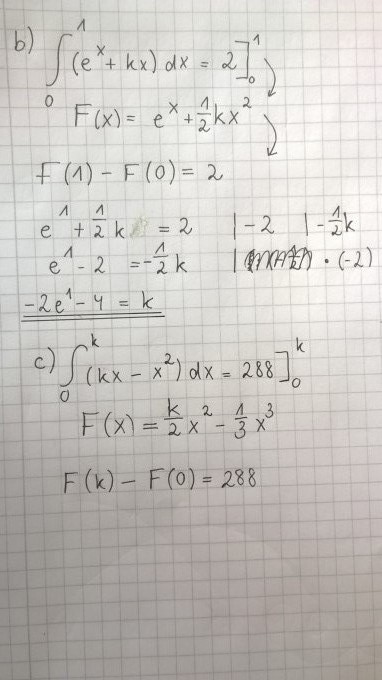 b) ∫₀¹ (eˣ + kx) dx = 2]₀¹
F(x) = eˣ + ½kx²
F(1) − F(0) = 2
e¹ + ½k = 2 | −2 | −½k
e¹ − 2 = −½k | · (−2)
−2e¹ − 4 = k
c) ∫₀ᵏ (kx − x²) dx = 288]₀ᵏ
F(x) = k/2 x² − ⅓x³
F(k) − F(0) = 288